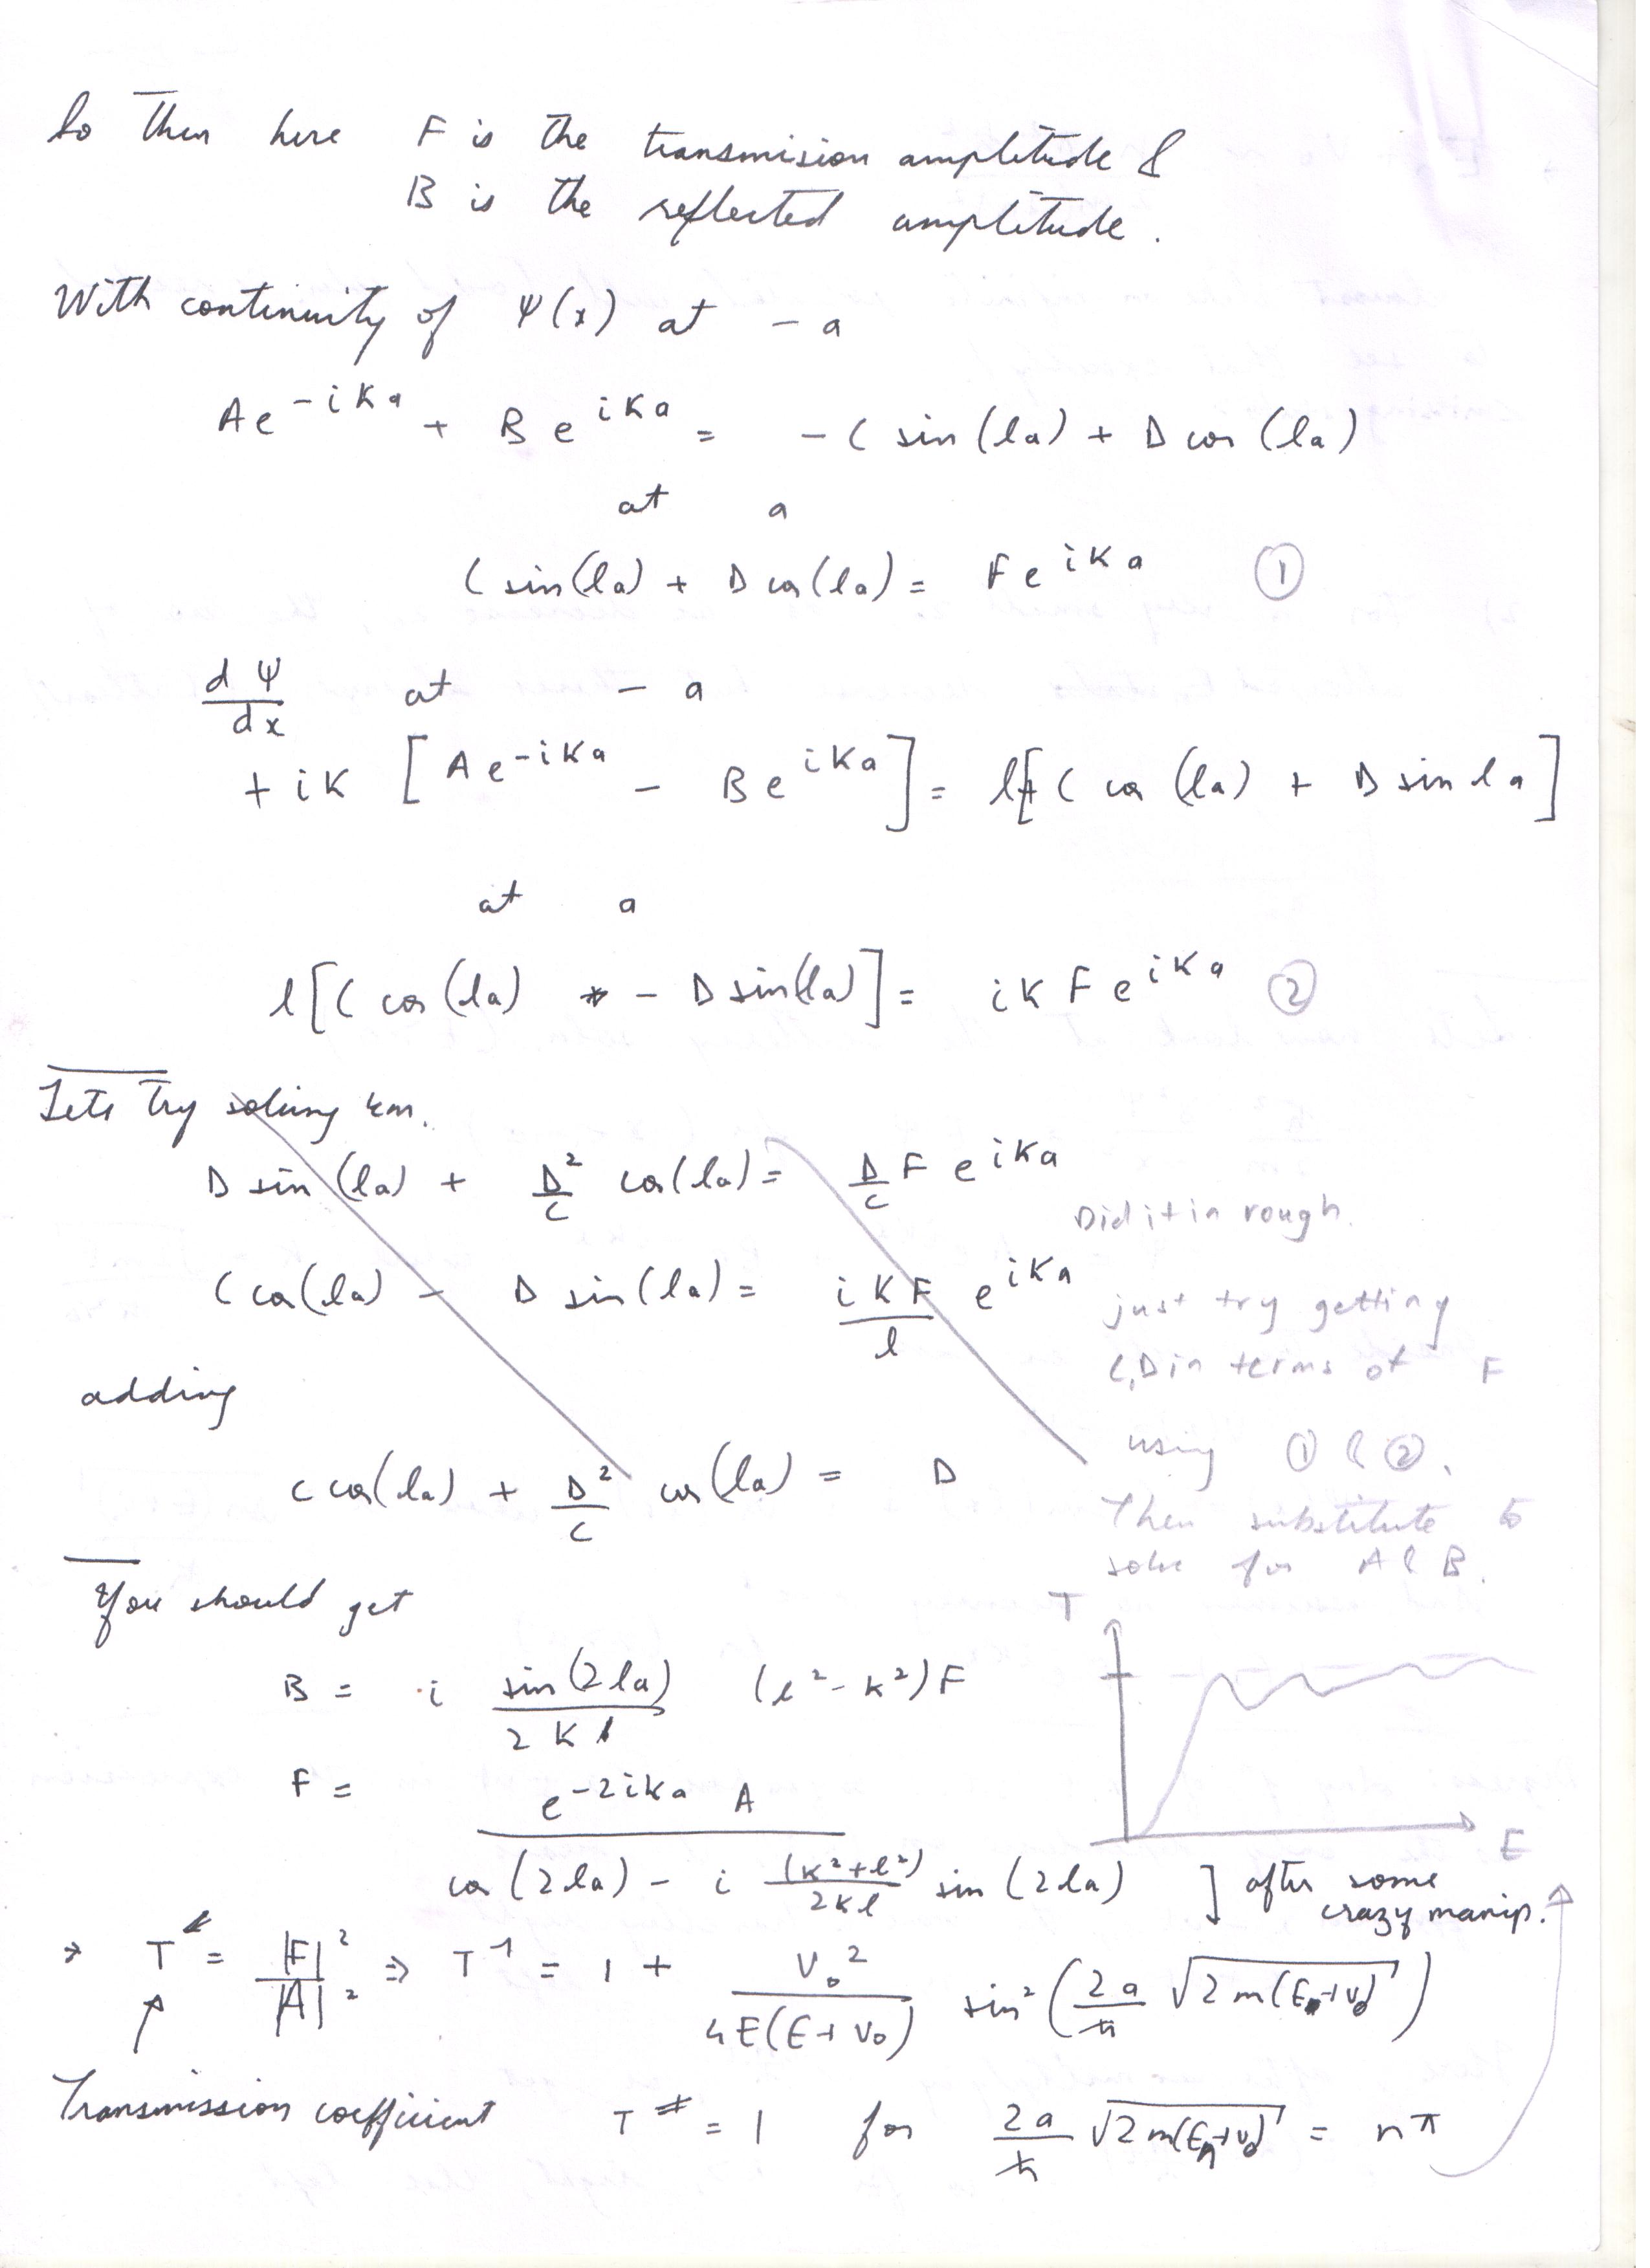 So Then here F is the transmision amplitude &
B is the reflected amplitude.
With continuity of Ψ(x) at - a
Ae^{-iKa} + Be^{iKa} = - C sin(la) + D cos(la)
at a
C sin(la) + D cos(la) = Fe^{iKa} ①
dΨ/dx at - a
+iK [Ae^{-iKa} - Be^{iKa}] = l[C cos(la) + D sin la]
at a
l[C cos(la) - D sin(la)] = iKFe^{iKa} ②
Lets Try solving em.
D sin(la) + D²/C cos(la) = D/C Fe^{iKa}
Did it in rough.
C cos(la) - D sin(la) = iKF/l e^{iKa}
just try getting
C,D in terms of F
adding
using ① & ②.
C cos(la) + D²/C cos(la) = D
Then substitute to
solve for A & B.
You should get
T
B = i sin(2la)/2Kl (l²-K²)F
F = e^{-2iKa} A / cos(2la) - i (K²+l²)/2Kl sin(2la) ] after some
crazy manip.
E
⇒ T = |F|²/|A|² ⇒ T^{-1} = 1 + V₀²/4E(E+V₀) sin²(2a/ħ √2m(E+V₀))
Transmission coefficient T = 1 for 2a/ħ √2m(Eₙ+V₀) = nπ